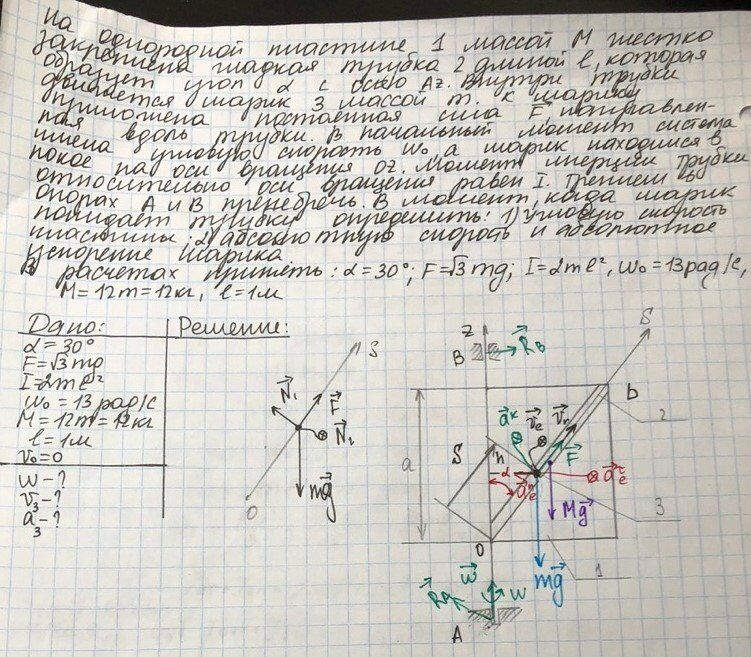 На однородной пластине 1 массой M жестко
закреплена гладкая трубка 2 длиной l, которая
образует угол α с осью Az. Внутри трубки
двигается шарик 3 массой m. К шарику
приложена постоянная сила F, направлен-
ная вдоль трубки. В начальный момент система
имела угловую скорость ω₀, а шарик находился в
покое на оси вращения Oz. Момент инерции трубки
относительно оси вращения равен I. Трением в
опорах A и B пренебречь. В момент, когда шарик
покидает трубку определить: 1) угловую скорость
пластины; 2) абсолютную скорость и абсолютное
ускорение шарика.
В расчетах принять: α=30°; F=√3mg; I=2ml², ω₀=13рад/с,
M=12m=12кг, l=1м
Дано:
α=30°
F=√3mg
I=2ml²
ω₀=13рад/с
M=12m=12кг
l=1м
v₀=0
ω-?
v₃-?
a₃-?
Решение:
S
N₁
F
N₂
mg
O
z
B
R_B
S
b
2
a
S
h
α
aᵏ
v_e
v_r
F
a_eⁿ
a_e^τ
Mg
3
O
mg
1
ω
ω
R_A
A